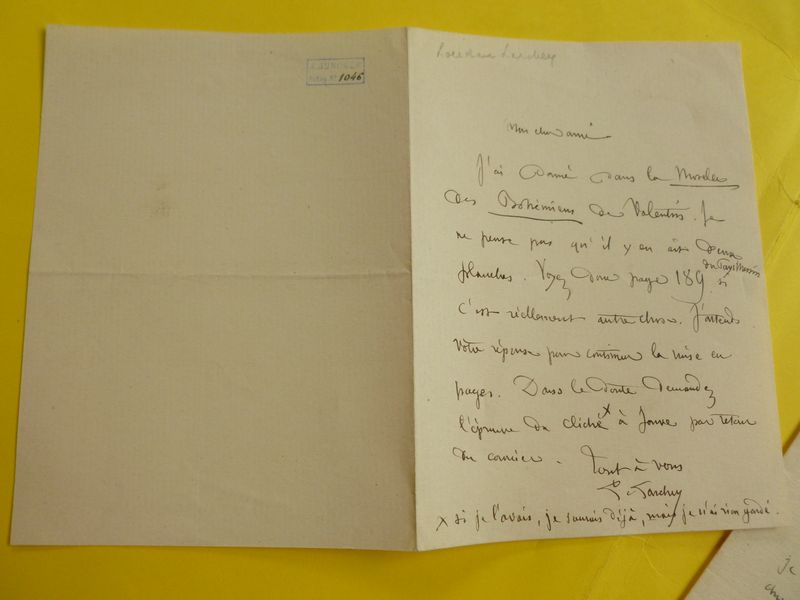 1046
Lorédan Larchey
Mon cher ami
J'ai donné dans la Moselle
des Bohémiens de Valentin. Je
ne pense pas qu'il y en ait deux
planches. Voyez donc page 189 du Pays Messin si
c'est réellement autre chose. J'attends
votre réponse pour continuer la mise en
pages. Dans le doute demandez
l'épreuve du cliché x à Jouve par retour
du courrier. Tout à vous
L. Larchey
x si je l'avais, je saurais déjà, mais je n'ai rien gardé.
je